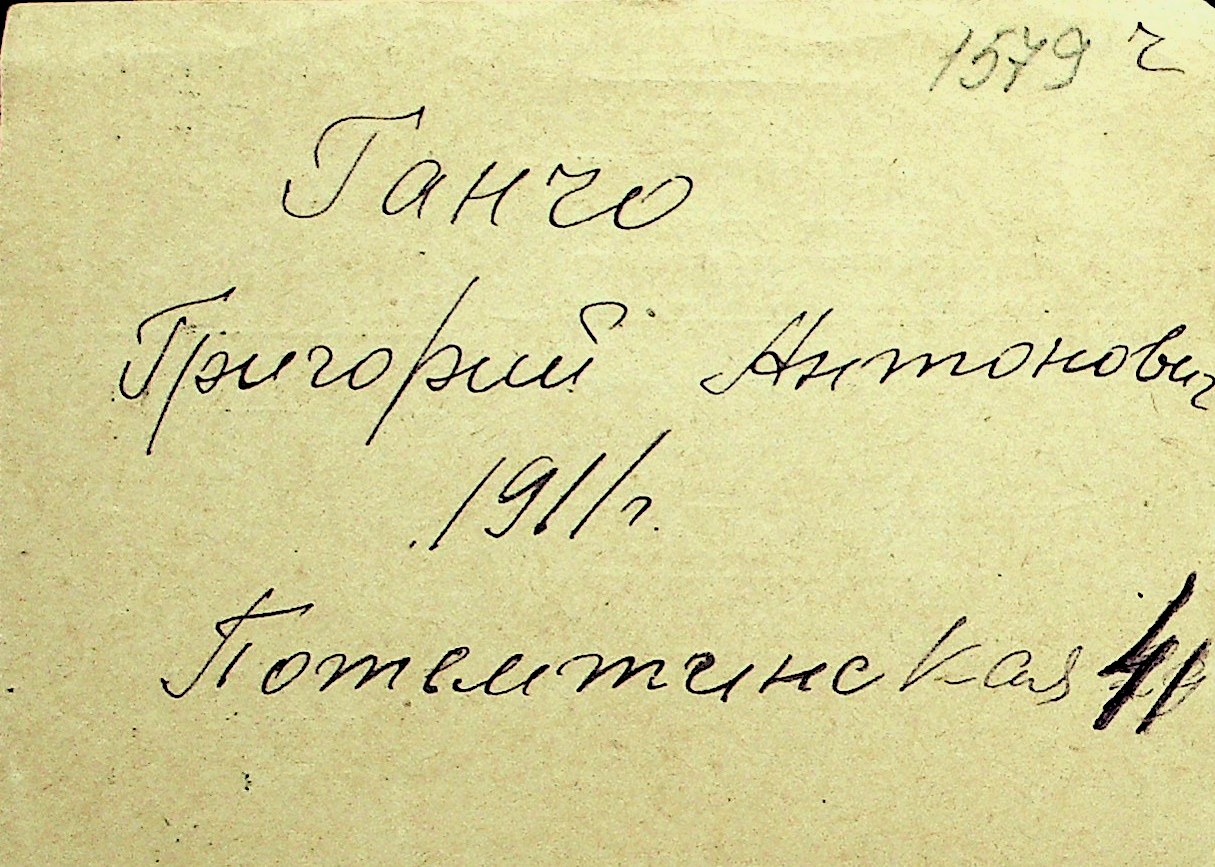 1579 ч
Ганчо
Григорий Антонович
1911 г.
Потемтинская 41